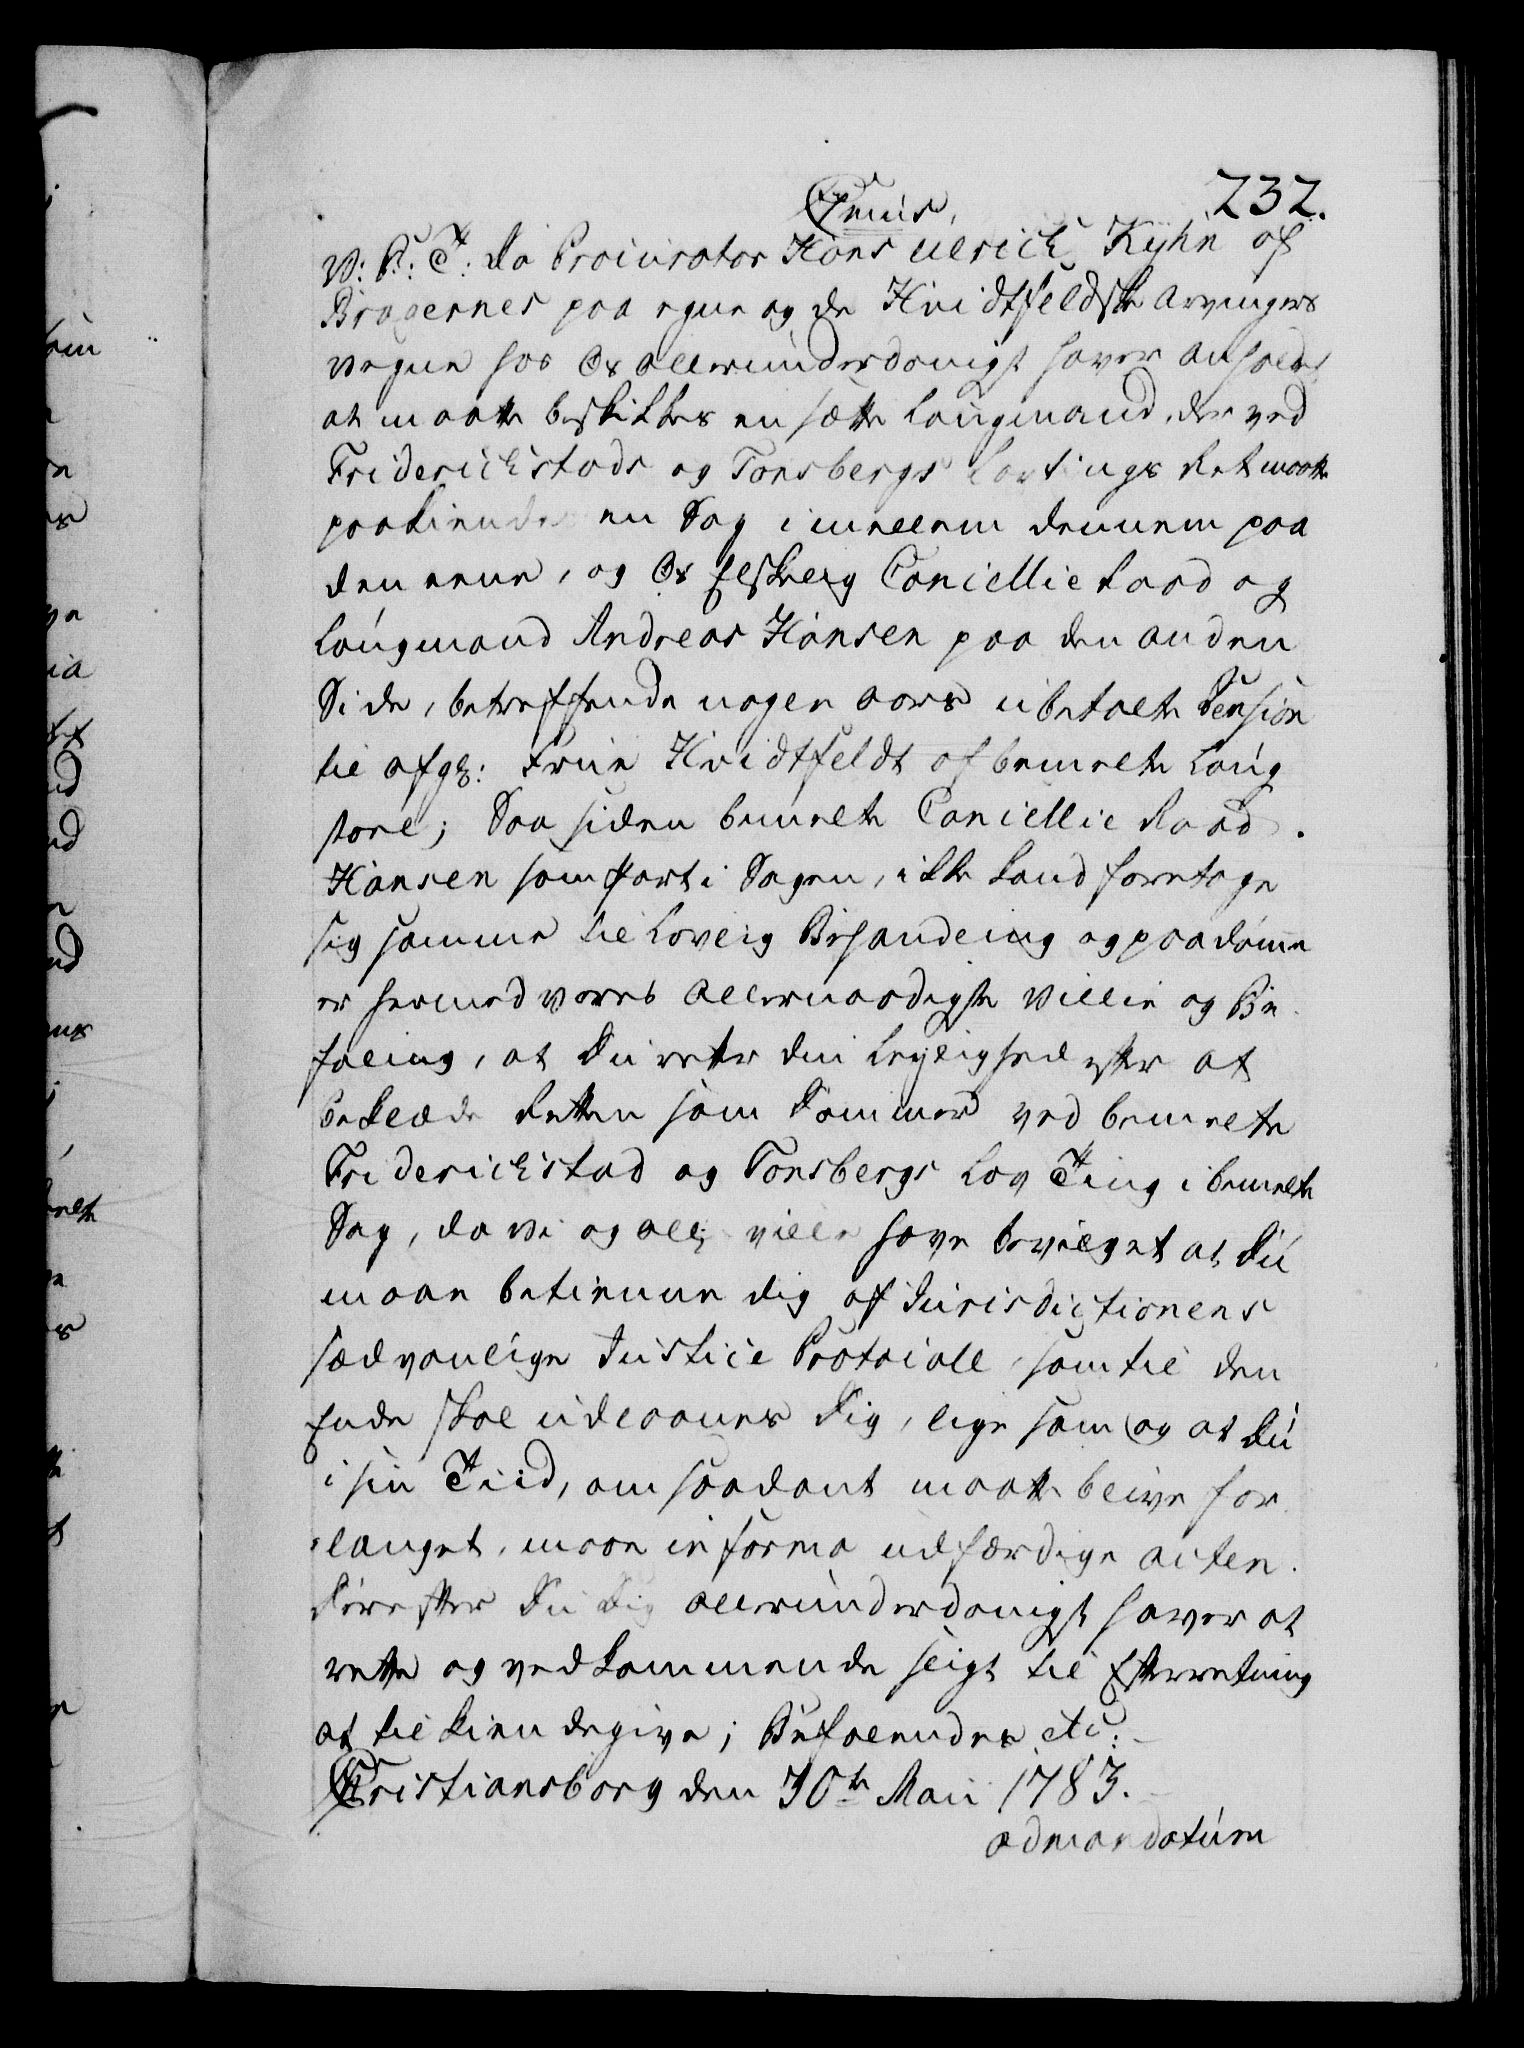 232.
V: G: T: Da Procurator Hans Ulrich Kyhn af
Bragernes paa egne og de Hvidtfeldske Arvingers
vegne hos Os allerunderdanigst haver anholdet
at maatte beskikkes en sætte Laugmand, der ved
Friderichstads og Tonsbergs Lavtings Ret maatte
paakiende en Sag imellem dennem paa
den eene, og Os Elskelig Cancellie Raad og
Laugmand Andreas Hansen paa den anden
Side, betreffende nogen aars ubetalte Pension
til afg: Frue Hvidtfeldt af bemelte Laug
stoel; Saa siden bemelte Cancellie Raad
Hansen som Part i Sagen, ikke kand foretage
sig samme til Lovlig Behandling og paadømme
er hermed vores allernaadigste Villie og Be-
faling, at Du retter din Leylighed efter at
beklæde Retten som Dommer ved bemelte
Friderichstad og Tonsbergs Lov Ting i bemelte
Sag, da Vi og all: ville have bevilget at Du
maae betienne dig af Jurisdictionens
sædvanlige Justice Protocoll, som til den
Ende skal udlaanes Dig, lige som og at Du
i sin Tiid, om saadant maatte blive for
langet, maae in forma udfærdige acten.
Derefter Du Dig allerunderdanigst haver at
rette og vedkommende sligt til Efterretning
at tilkiendegive; Befalendes etc:
Christiansborg den 30te Maii 1783.
ad mandatum